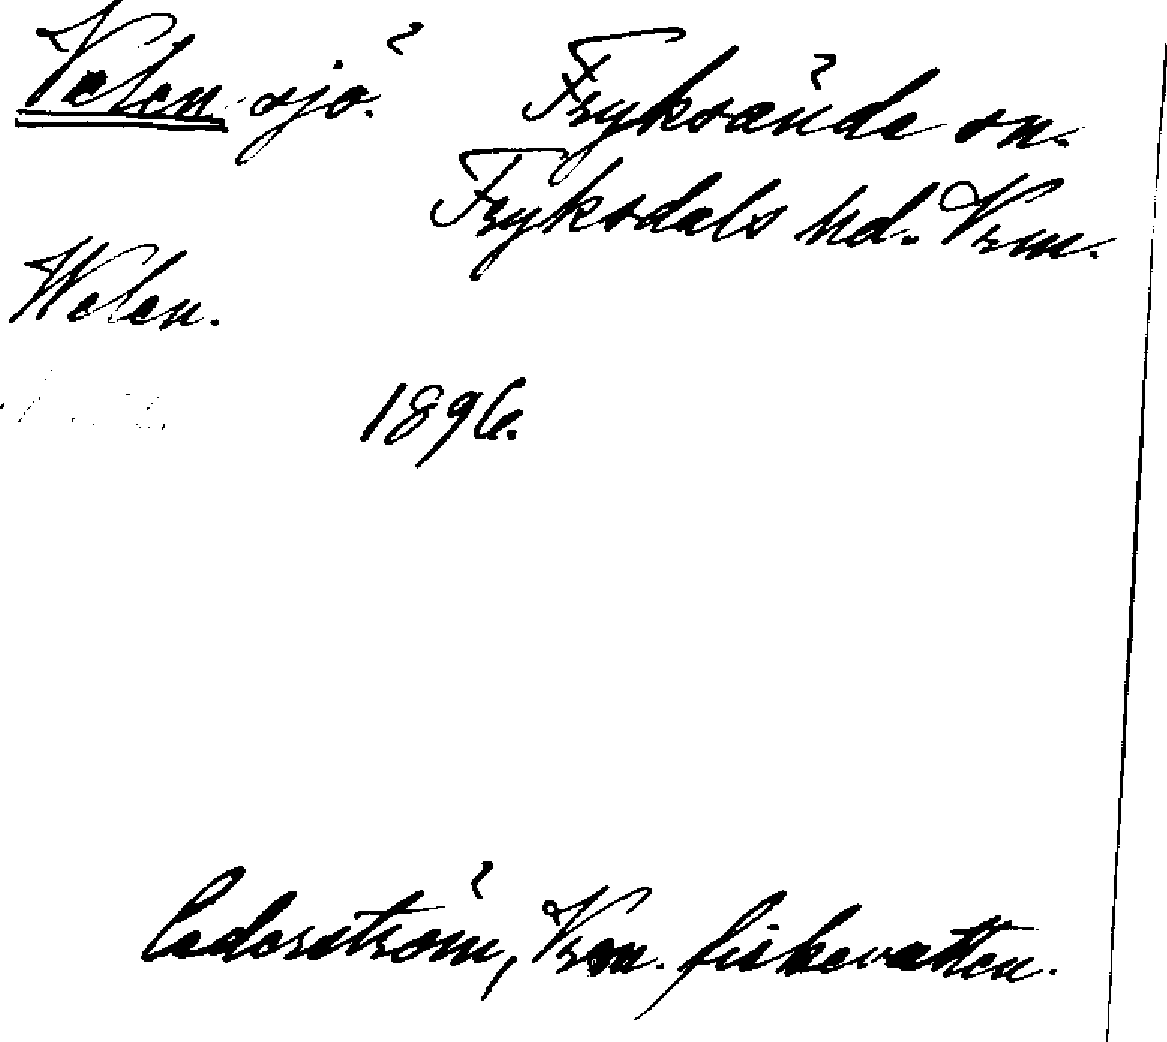 Velen sjö. Fryksände sn.
Fryksdals hd. Vrm.
Welen.
1896.
Cederström, Vrm. fiskevatten.